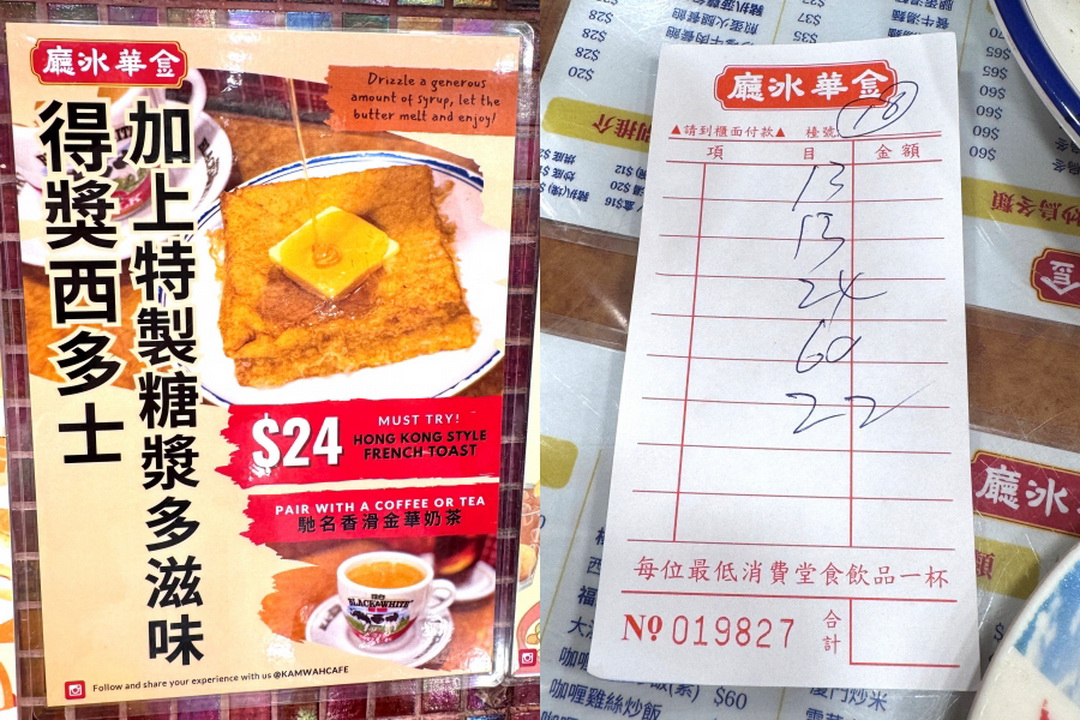 金華冰廳
得獎西多士
加上特製糖漿多滋味
Drizzle a generous
amount of syrup, let the
butter melt and enjoy!
$24
MUST TRY!
HONG KONG STYLE
FRENCH TOAST
PAIR WITH A COFFEE OR TEA
馳名香滑金華奶茶
BLACK&WHITE
Follow and share your experience with us @KAMWAHCAFE
廳冰華金
▲請到櫃面付款▲ 檯號
項 目 金額
13
13
24
60
22
每位最低消費堂食飲品一杯
No 019827
合計
廳冰
咖喱雞絲炒飯
$60
廈門炒米
$28
$28
$28
$20
$37
$35
$65
$65
$60
$60
$60